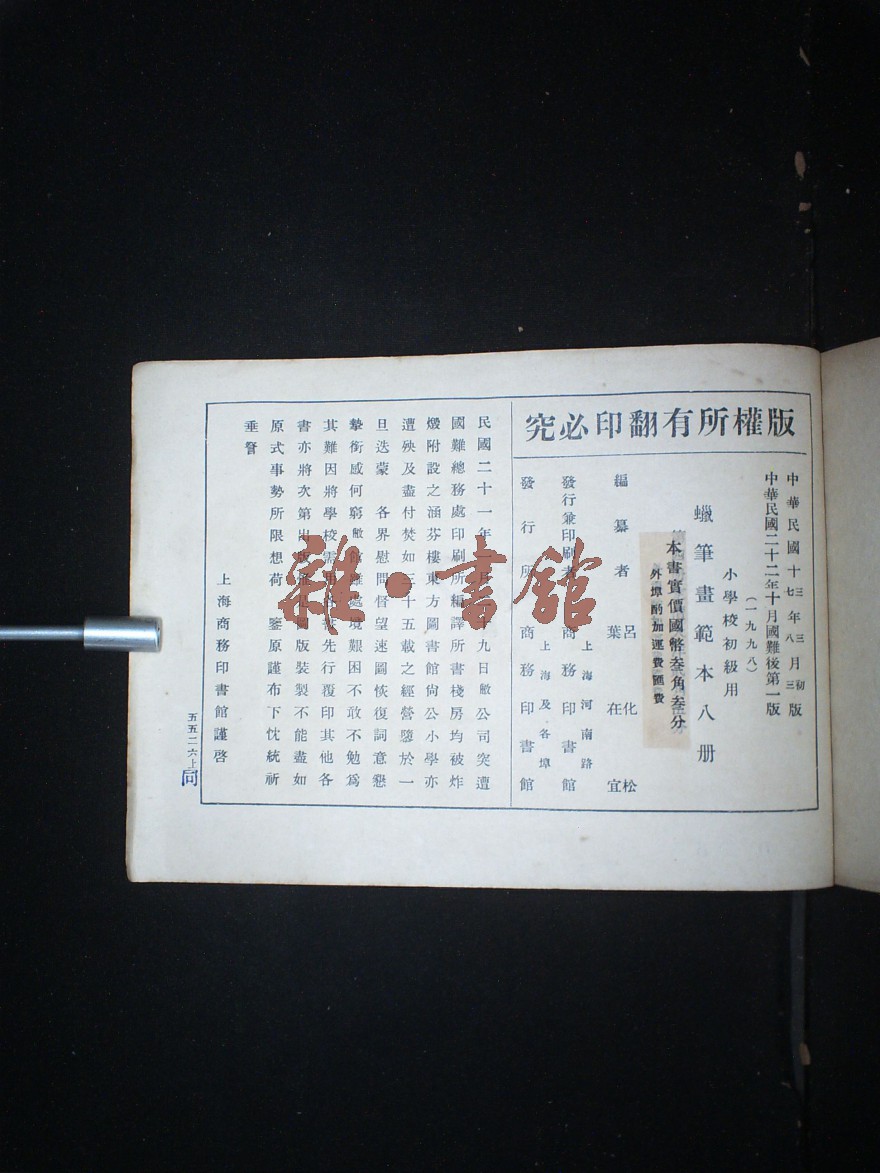 版權所有翻印必究
中華民國十三年三月初版
中華民國十七年八月三版
中華民國二十二年十月國難後第一版
(一九九八)
小學校初級用
蠟筆畫範本八册
本書實價國幣叁角叁分
外埠酌加運費匯費
編纂者 呂化松
葉在宜
發行兼印刷者 上海河南路
商務印書館
發行所 上海及各埠
商務印書館
民國二十一年一月二十九日敝公司突遭
國難總務處印刷所編譯所書棧房均被炸
燬附設之涵芬樓東方圖書館尙公小學亦
遭殃及盡付焚如三十五載之經營隳於一
旦迭蒙 各界慰問督望速圖恢復詞意懇
摯銜感何窮敝館雖處境艱困不敢不勉爲
其難因將學校需用各書先行覆印其他各
書亦將次第出版惟是圖版裝製不能盡如
原式事勢所限想荷 鑒原謹布下忱統祈
垂詧
上海商務印書館謹啓
五五二六上
同
雜·書館